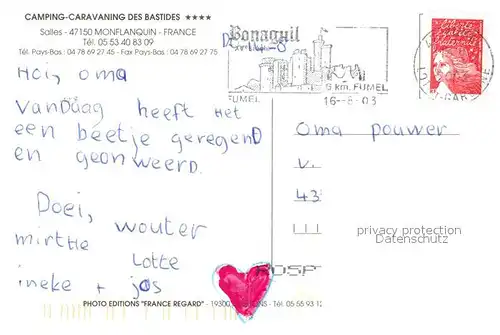 CAMPING-CARAVANING DES BASTIDES ★★★★
Salles - 47150 MONFLANQUIN - FRANCE
Tél. 05 53 40 83 09
Tél. Pays-Bas : 04 78 69 27 45 - Fax Pays-Bas : 04 78 69 27 75
Hoi, oma
vandaag heeft het
een beetje geregend
en geonweerd.
Doei, wouter
mirthe
Lotte
ineke + jos
Bonaguil
FUMEL
6 km. FUMEL
16-8-03
Liberté
égalité
fraternité
oma pouwer
v.
43
privacy protection
Datenschutz
PHOTO EDITIONS "FRANCE REGARD" - 19300
Tél. 05 55 93 12